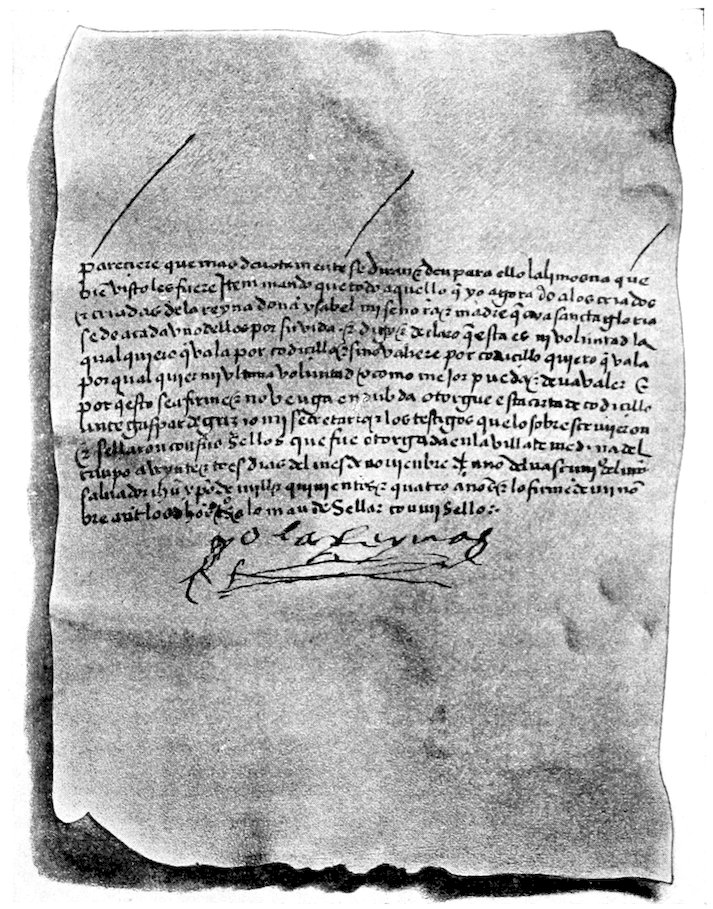 pareciere que mas devotamente se diran & den para ello la limosna que
bie visto les fuere Item mando que todo aquello q̃ yo agora do a los criados
& criadas dela reyna dona ysabel mi señora & madre que aya sancta gloria
se de a cada vno dellos por su vida & digo & declaro q̃ esta es mi voluntad la
qual quiero q̃ vala por codicillo & si no valiere por codicillo quiero q̃ vala
por qual quier mi vltima voluntad & como mejor puede & deua valer E
por q̃ esto sea firme & no venga en dubda otorgue esta carta de codicillo
ante gaspar de grizio mi secretario & los testigos que lo sobre escriuieron
& sellaron con sus Sellos que fue otorgada en la villa de medina del
campo a veynte & tres dias del mes de nouiembre del año del nascimi° del nro
saluador ihũ xpõ de mill & quinientos & quatro años & lo firme de mi nõ
bre ante los dhos t°s & lo mande Sellar con mi Sello
yo la Reyna